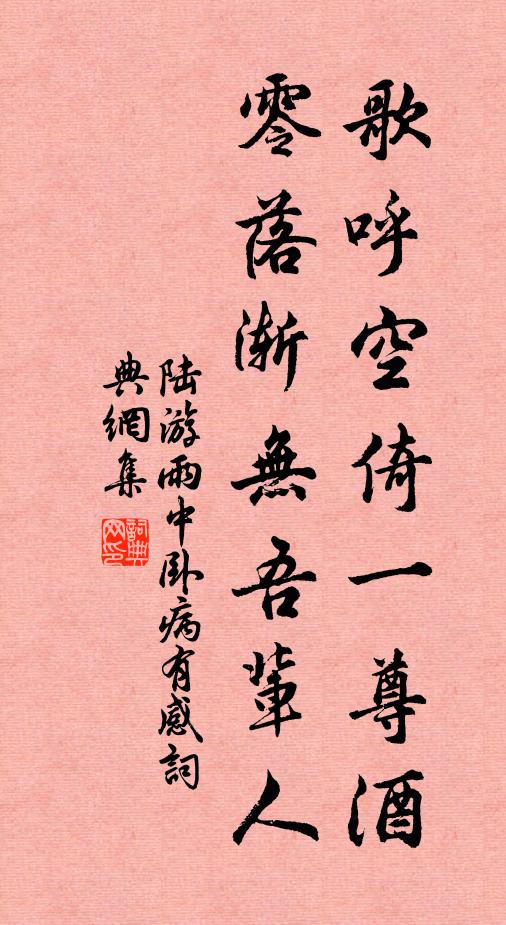 歌呼空倚一尊酒
零落渐無吾輩人
陆游雨中卧病有感詞
典網集
詞典网印